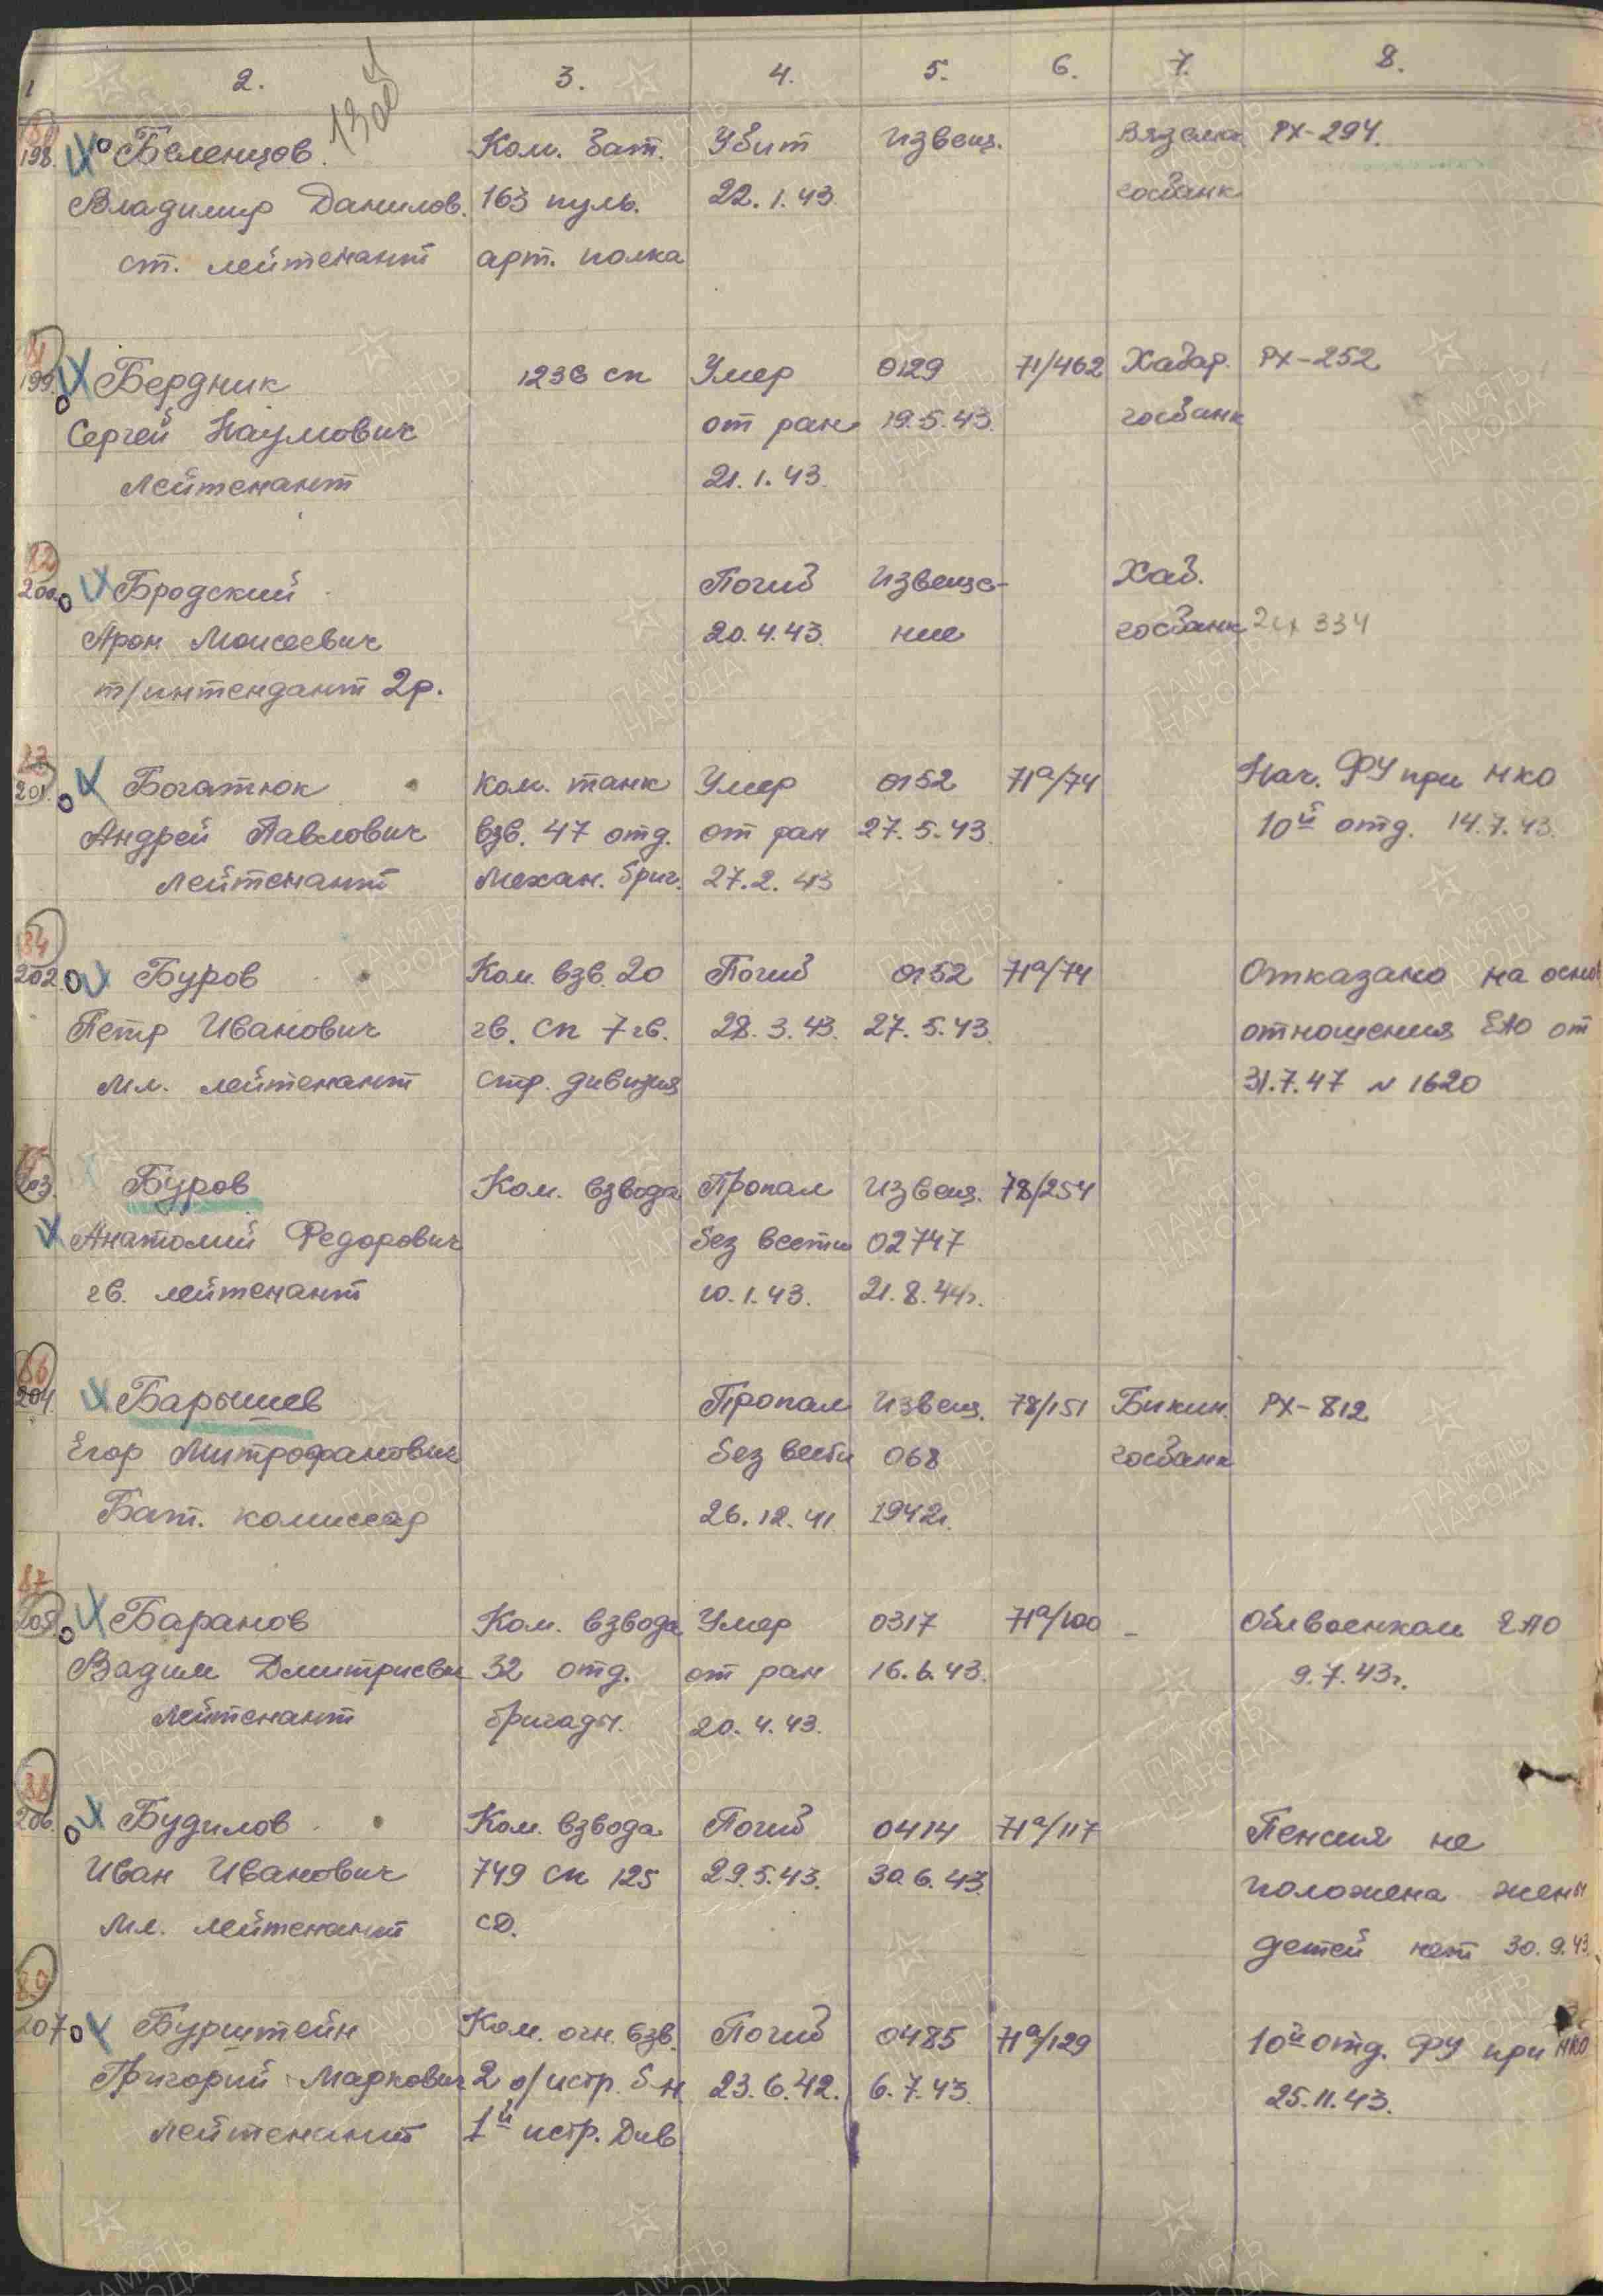 1 2. 3. 4. 5. 6. 7. 8.
198 Беленцов. Ком. бат. Убит Извещ. Вязема РХ-294.
Владимир Данилов. 163 пуль. 22.1.43 госбанк
ст. лейтенант арт. полка
81
199. Бердник 1236 сп Умер 0129 71/462 Хабар. РХ-252
Сергей Наумович от ран 19.5.43. госбанк
лейтенант 21.1.43.
82
200. Бродский Погиб Извеще- Хаб.
Арон Моисеевич 20.4.43. ние госбанк 334
т/интендант 2р.
83
201. Богатюк Ком. танк Умер 0152 71а/74 Нач. ФУ при НКО
Андрей Павлович взв. 47 отд. от ран 27.5.43. 10й отд. 14.7.43.
лейтенант механ. бриг. 27.2.43
84
202. Буров Ком. взв. 20 Погиб 0152 71а/74 Отказано на основ
Петр Иванович гв. сп 7 гв. 28.3.43. 27.5.43. отношения ЕАО от
мл. лейтенант стр. дивизия 31.7.47 N 1620
203. Буров Ком. взвода Пропал Извещ. 78/254
Анатолий Федорович без вести 02747
гв. лейтенант 10.1.43. 21.8.44г.
86
204. Барышев Пропал Извещ. 78/151 Бикин. РХ-812
Егор Митрофанович без вести 068 госбанк
Бат. комиссар 26.12.41. 1942г.
87
205. Баранов Ком. взвода Умер 0317 71а/100 - Облвоенком ЕАО
Вадим Дмитриевич 32 отд. от ран 16.6.43. 9.7.43г.
лейтенант бригады. 20.4.43.
88
206. Будилов Ком. взвода Погиб 0414 71а/117 Пенсия не
Иван Иванович 749 сп 125 29.5.43. 30.6.43. положена жены
мл. лейтенант сд. детей нет 30.9.43.
89
207 Бурштейн Ком. огн. взв. Погиб 0485 71а/129 10й отд. ФУ при НКО
Григорий Маркович 2 о/истр. б-н 23.6.42. 6.7.43. 25.11.43.
лейтенант 1й истр. Див